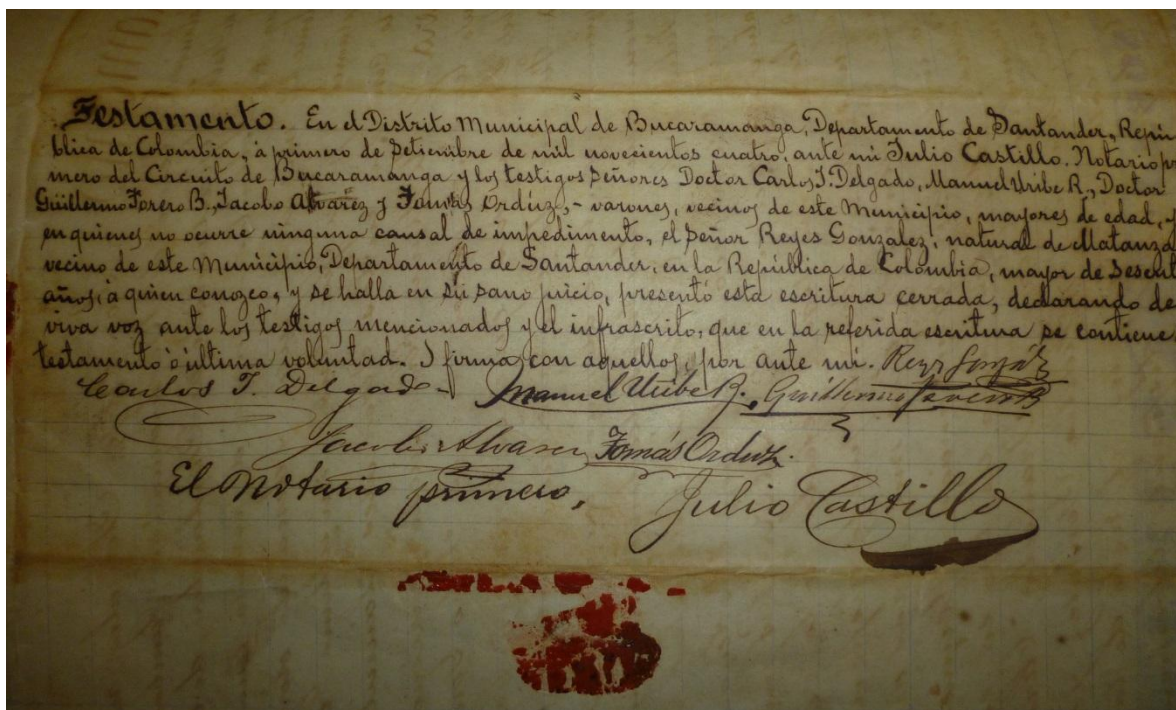 Testamento. En el Distrito Municipal de Bucaramanga, Departamento de Santander, Repú-
blica de Colombia, á primero de Setiembre de mil novecientos cuatro, ante mi Julio Castillo. Notario pri
mero del Circuito de Bucaramanga y los testigos Señores Doctor Carlos T. Delgado, Manuel Uribe R., Doctor
Guillermo Forero B., Jacobo Alvarez y Tomás Ordúz, - varones, vecinos de este Municipio, mayores de edad,
en quienes no ocurre ninguna causal de impedimento, el Señor Reyes Gonzalez, natural de Matanza
vecino de este Municipio, Departamento de Santander, en la República de Colombia, mayor de Sesent
años, á quien conozco, y se halla en su sano juicio, presentó esta escritura cerrada, declarando de
viva voz ante los testigos mencionados y el infrascrito, que en la referida escritura se contiene
testamento ó última voluntad. I firma con aquellos, por ante mi. Reys Gonzál
Carlos T. Delgado - Manuel Uribe R. Guillermo Forero B
Jacobo Alvarez Tomás Orduz.
El Notario primero, Julio Castillo